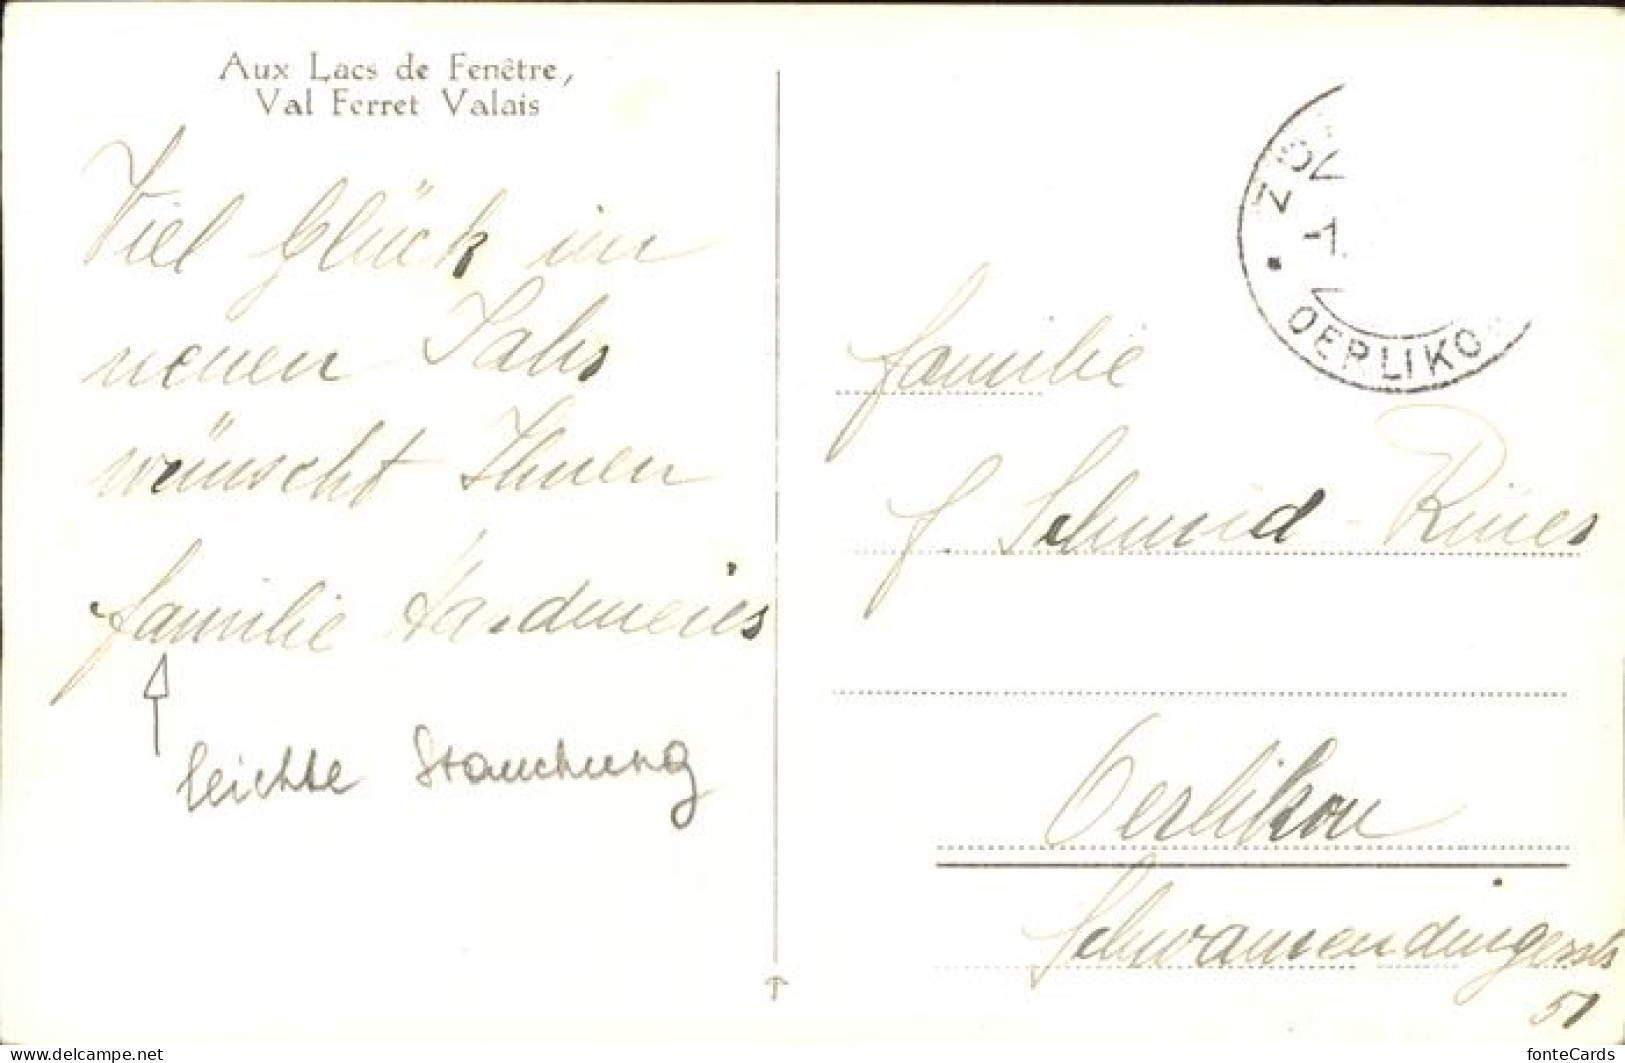 Aux Lacs de Fenêtre,
Val Ferret Valais
Viel Glück im
neuen Jahr
wünscht Ihnen
Familie Hardmeier
leichte Stauchung
OERLIKO
Familie
J. Schmid-
Oerlikon
Schwamendingerstr
51
delcampe.net
fonteCards